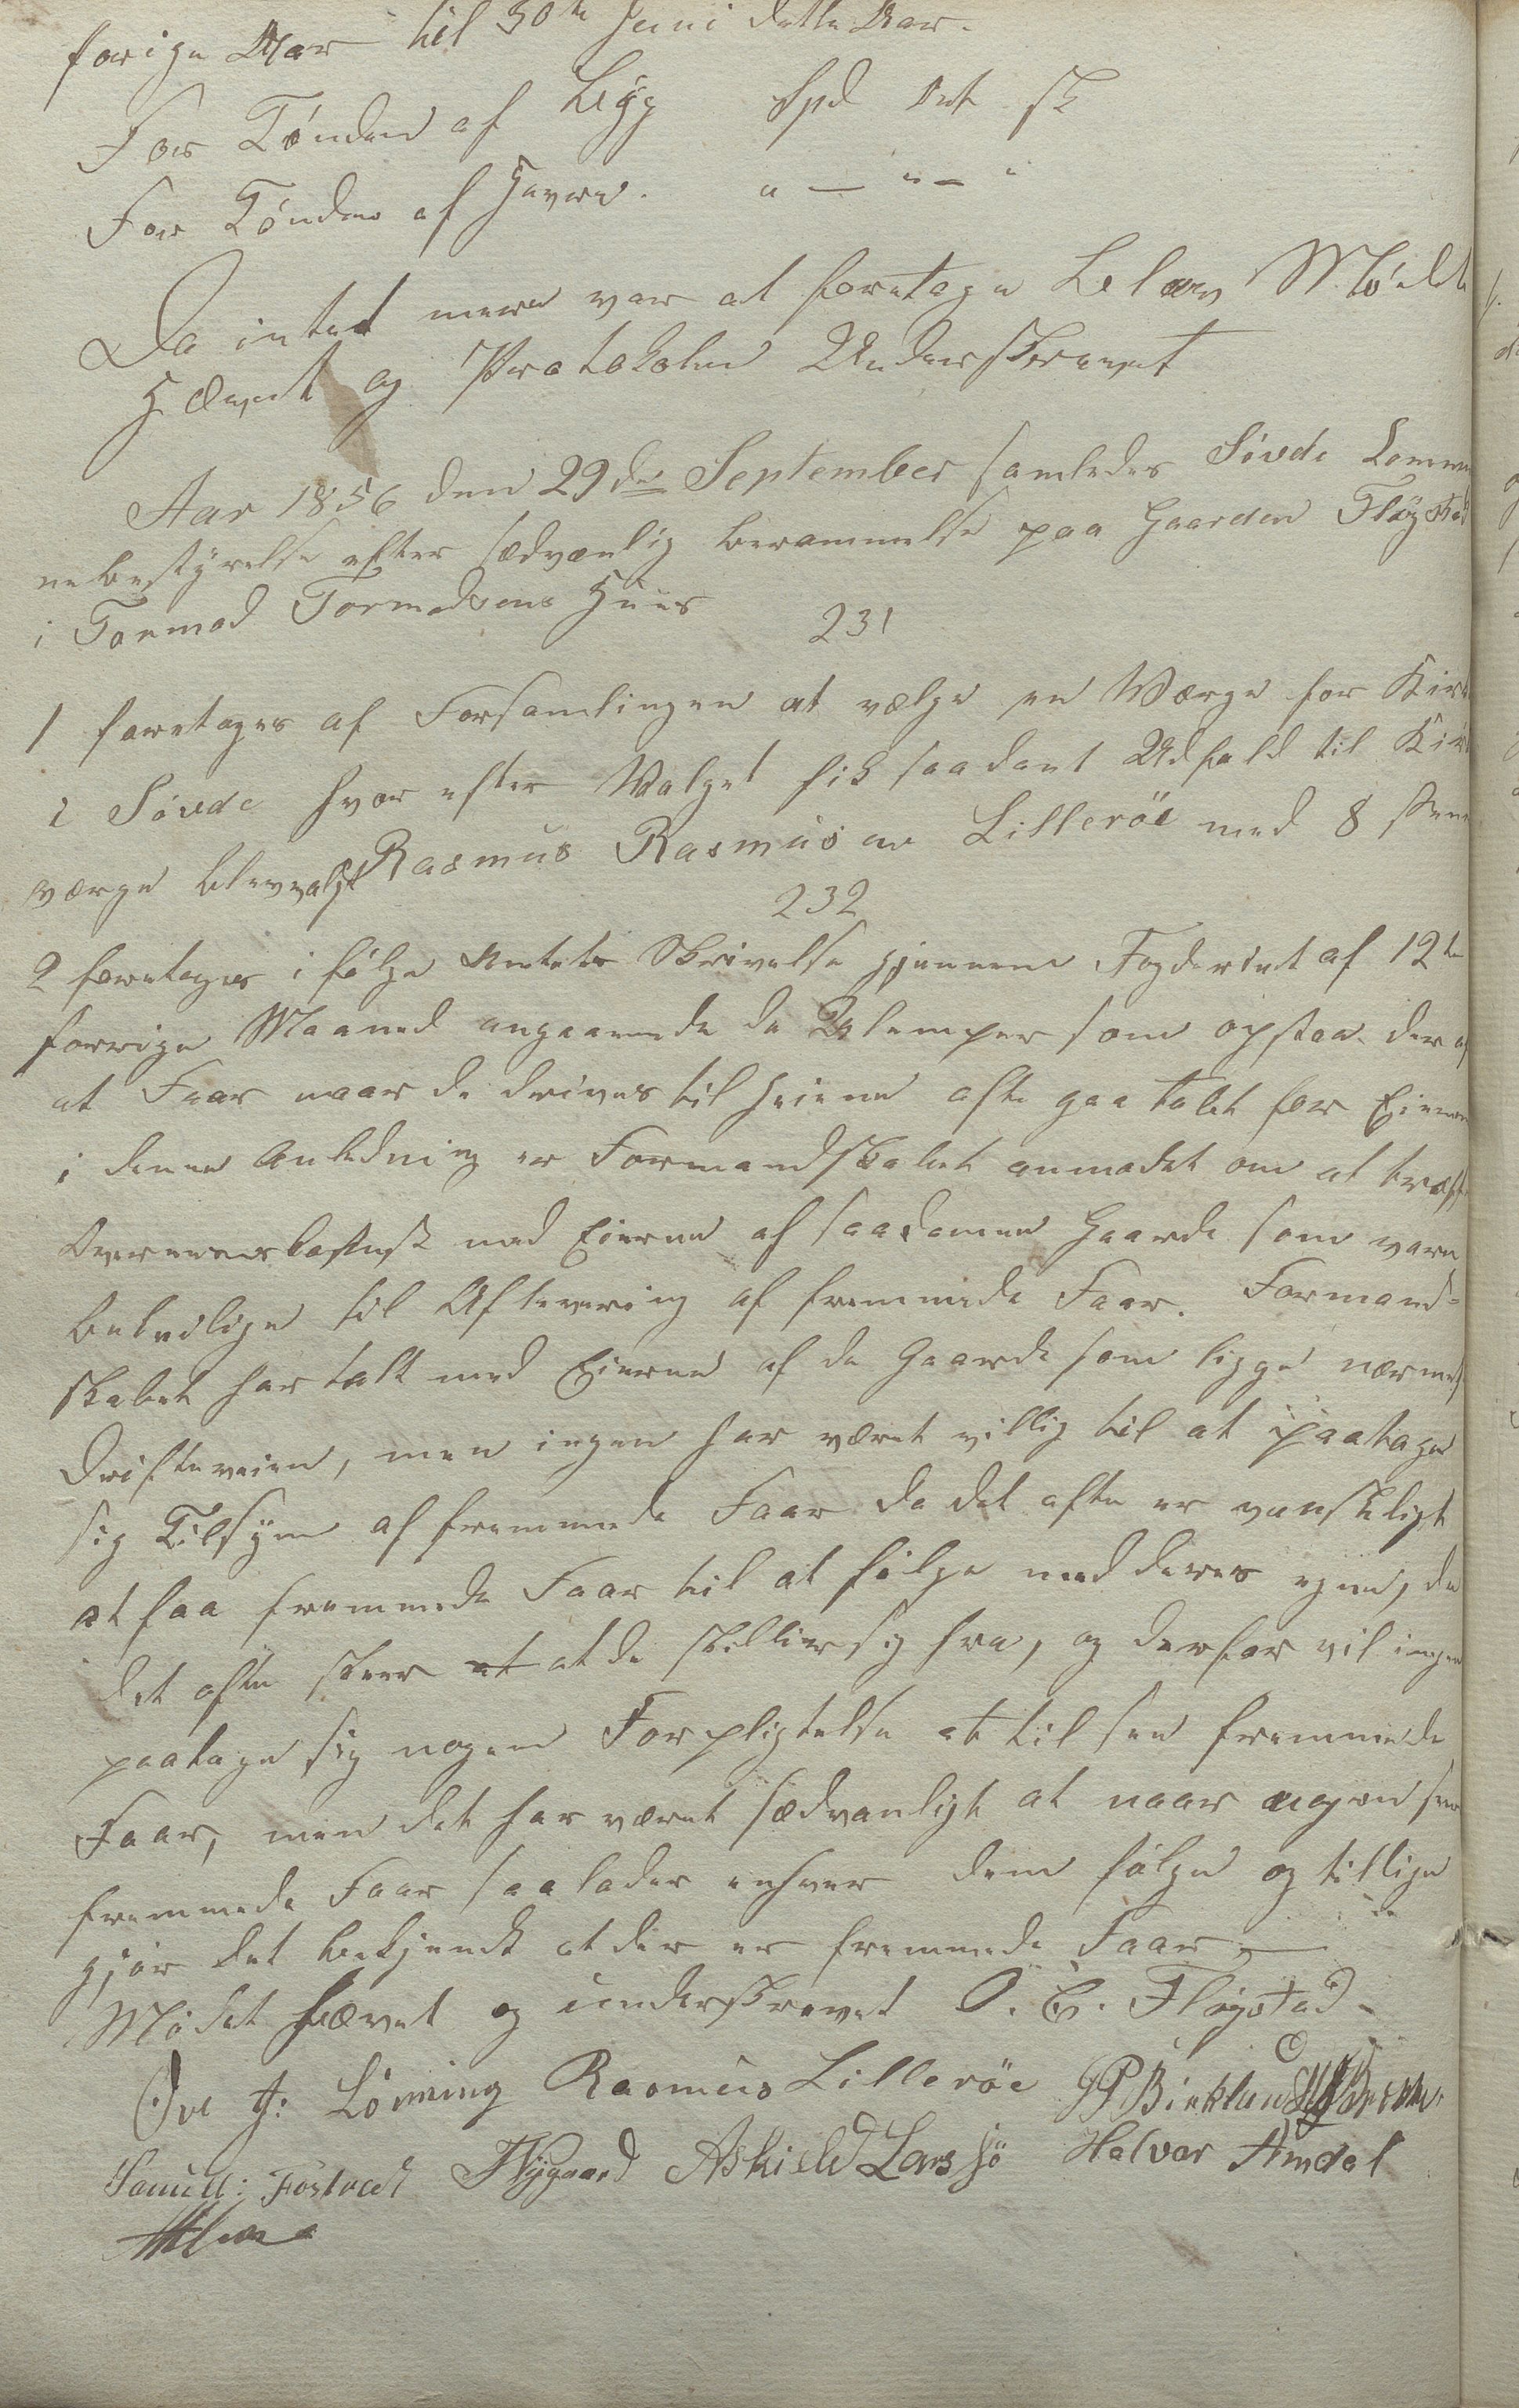 forige Aar til 30te Juni dette Aar.
For Tønden af Byg Spd Ort sk
For Tønden af Havre. " — " — "
Da intet mere var at foretage blev Mødet
Hævet og Protokolen Underskrevet
Aar 1856 den 29de September samledes Søvde Comm
nebestyrelse efter sædvanlig berammelse paa Gaarden Fløgstad
i Tormod Tormodsens Huus
231
1 foretoges af Forsamlingen at vælge en Værge for Kirk
i Søvde hvor efter Valget fik saadant Udfald til Kirk
værge blev valgt Rasmus Rasmusen Lillerøe med 8 stem
232
2 foretoges i følge Amtets Skrivelse gjennem Fogderiet af 12te
forrige Maaned angaaende de Ulemper som opstaa der af
at Faar naar de drives til Heiene ofte gaa tabt for Eieren
i denne Anledning er Formandskabet anmodet om at træffe
Overenskomst med Eierne af saadanne Gaarde som vare
beleilige til Aflevering af fremmede Faar. Formand-
skabet har talt med Eierne af de Gaarde som ligge nærmest
Drifteveien, men ingen har været villig til at paatage
sig Tilsyn af fremmede Faar da det ofte er vanskeligt
at faa fremmede Faar til at følge med deres egne, da
det ofte skeer at at de skiller sig fra, og derfor vil ingen
paatage sig nogen Forpligtelse at til see fremmede
Faar, men det har været sædvanligt at naar nogen seer
fremmede Faar saa lader enhver dem følge og tillige
gjør det bekjendt at der er fremmede Faar —
Mødet hævet og underskrevet O. E. Fløgstad
Ove J: Lønning Rasmus Lillerøe P Birkland
Samuel: Fostvedt T Nygaard Askield Lars jø Halvor Amdal